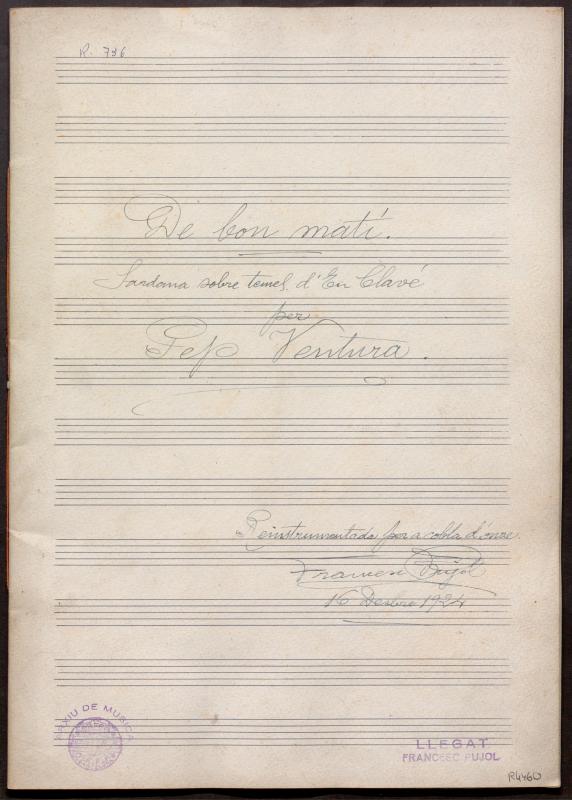 R. 736
De bon matí.
Sardana sobre temes d'En Clavé
per
Pep Ventura.
Reinstrumentada per a cobla d'onze.
Francesc Pujol
16 Desbre 1924
ARXIU DE MUSICA
LLEGAT
FRANCESC PUJOL
R4460